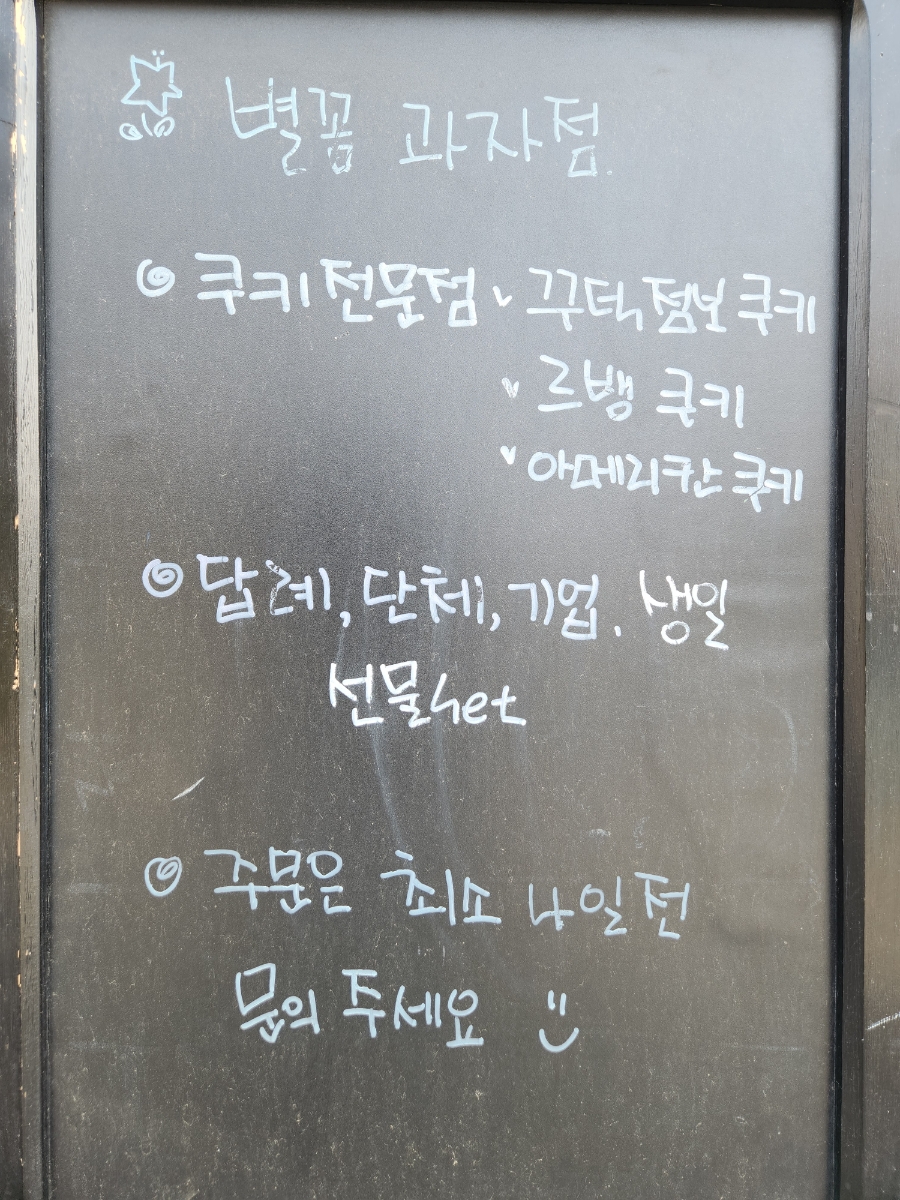 별꼼 과자점.
쿠키전문점 ✓ 꾸덕,점보쿠키
✓ 르뱅 쿠키
✓ 아메리칸쿠키
답례, 단체, 기업. 생일
선물set
주문은 최소 4일전
문의 주세요 :)